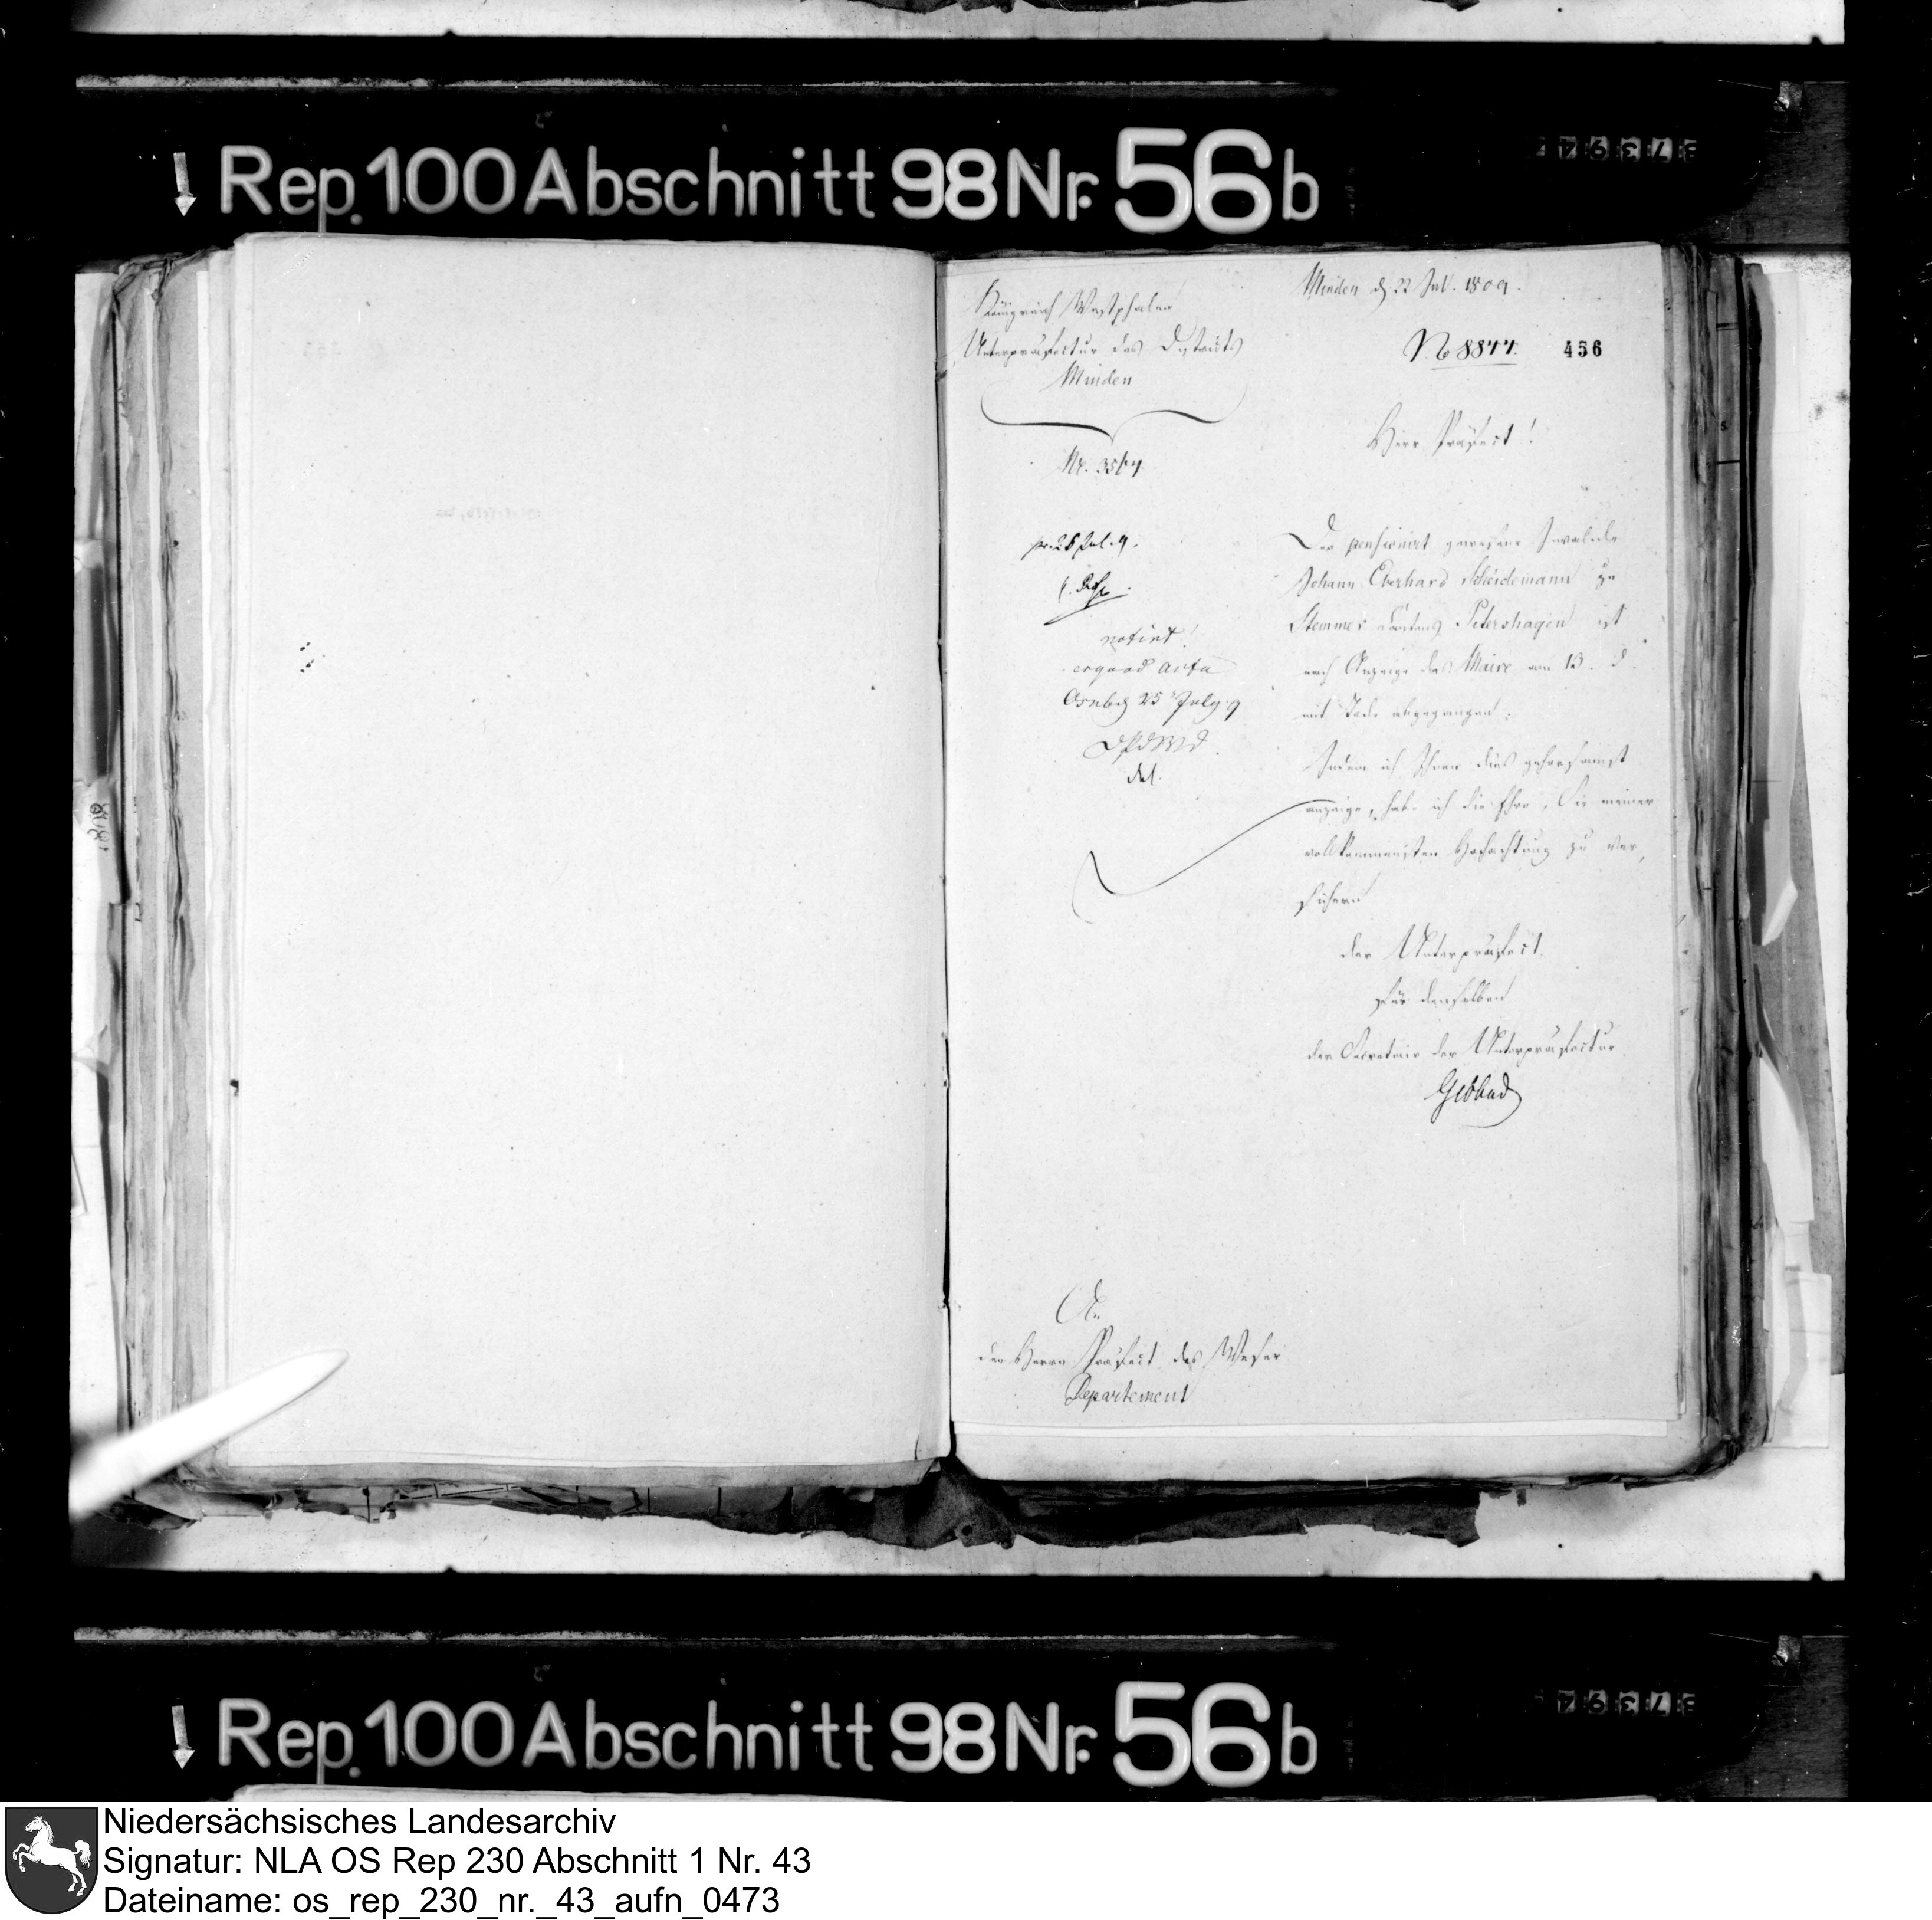 Rep. 100 Abschnitt 98 Nr. 56 b
Königreich Westphalen
Unterpräfectur des Districts
Minden
Nr. 3564
Minden d. 22 Jul. 1809.
No 8844.
456
Herr Präfect!
pr. 26 Jul. 9.
notirt!
ad acta
Osnbg 25 July 9
Der pensionirt gewesene Invalide
Johann Eberhard Scheidemann zu
Stemmer Cantons Petershagen ist
nach Anzeige des Maire vom 13. d.
mit Tode abgegangen.
Indem ich Ihnen dies gehorsamst
anzeige, habe ich die Ehre, Sie meiner
vollkommensten Hochachtung zu ver,
sichern
der Unterpräfect.
für denselben
der Secretair der Unterpräfectur
An
den Herrn Präfect des Weser
Departement
1808
Rep. 100 Abschnitt 98 Nr. 56 b
Niedersächsisches Landesarchiv
Signatur: NLA OS Rep 230 Abschnitt 1 Nr. 43
Dateiname: os_rep_230_nr._43_aufn_0473